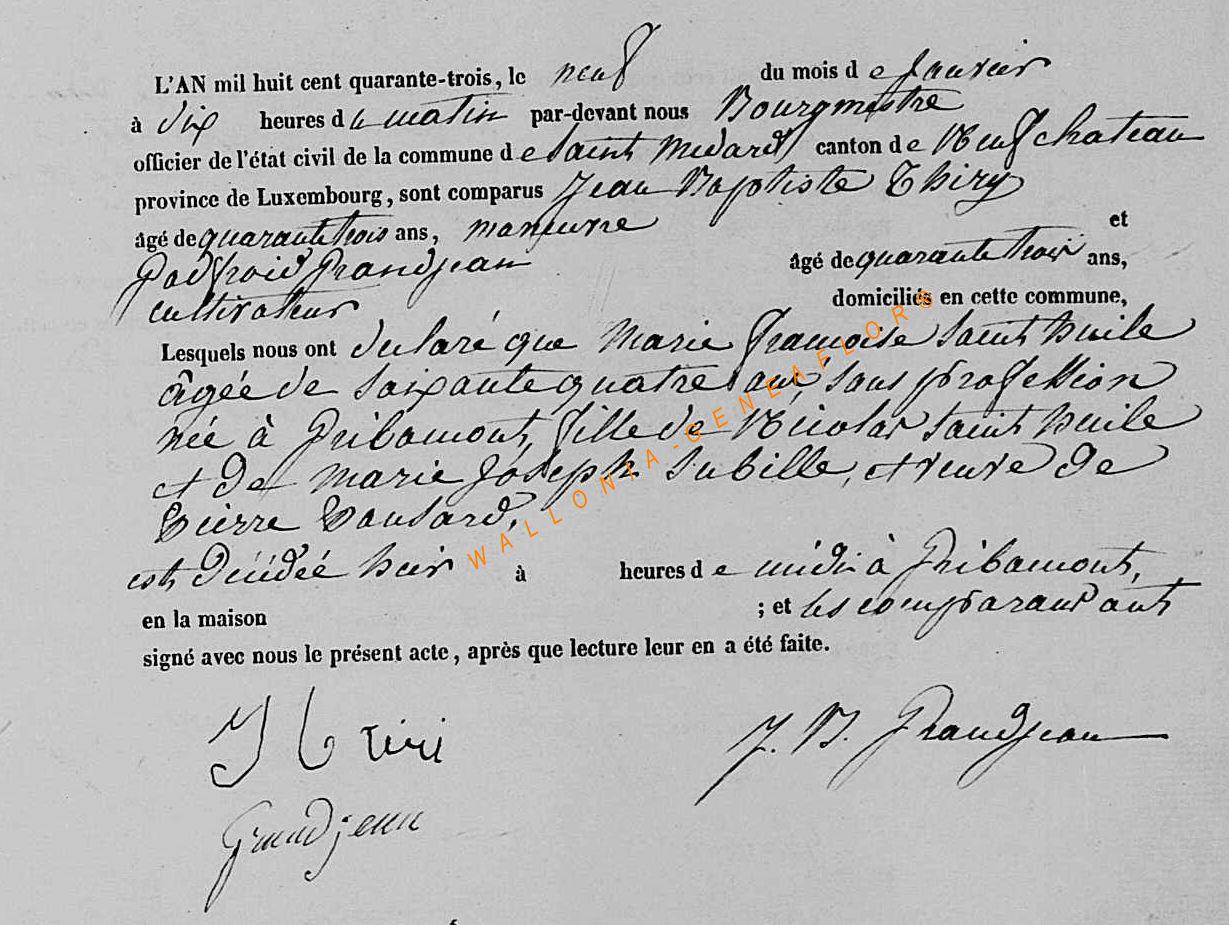 L'AN mil huit cent quarante-trois, le neuf du mois de Janvier
à dix heures du matin par-devant nous Bourgmestre
officier de l'état civil de la commune de Saint Medard canton de Neufchateau
province de Luxembourg, sont comparus Jean Baptiste Thiry
âgé de quarante trois ans, manœuvre et
Godfroid Grandjean âgé de quarante trois ans,
cultivateur domiciliés en cette commune,
Lesquels nous ont déclaré que Marie Françoise Saint huile
âgée de soixante quatre ans, sans profession
née à Gribamont, fille de Nicolas Saint huile
et de Marie Joseph Subille, et veuve de
Pierre Pansard,
est décédée hier à heures de midi à Gribamont,
en la maison ; et les comparans ont
signé avec nous le présent acte, après que lecture leur en a été faite.
J b tiri
J. B. Grandjean
Grandjean
WALLONIA-GENEAFLORE